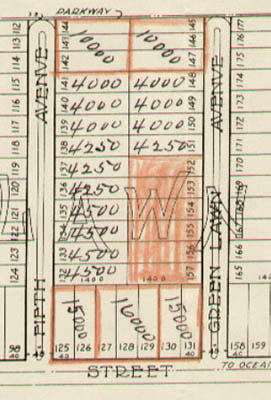 PARKWAY
113 112
144 10000 10000 145
143 146
142 147
141 4000 4000 148
140 4000 4000 149
139 4000 4000 150
138 4250 4250 151
137 4250 152
136 4250 153
135 4500 154
134 4500 155
133 4500 156
132 4500 157
140 0 140 0
114
115
116
117
118
119
120
121
122
123
124
177 176
175
174
173
172
171
170
169
168
167
166
165
FIFTH AVENVE
GREEN LAWN AVENVE
A W N
15000 16000 15000
98 125 126 127 128 129 130 131 158 159
40 40 40 40
STREET
TO OCEAN